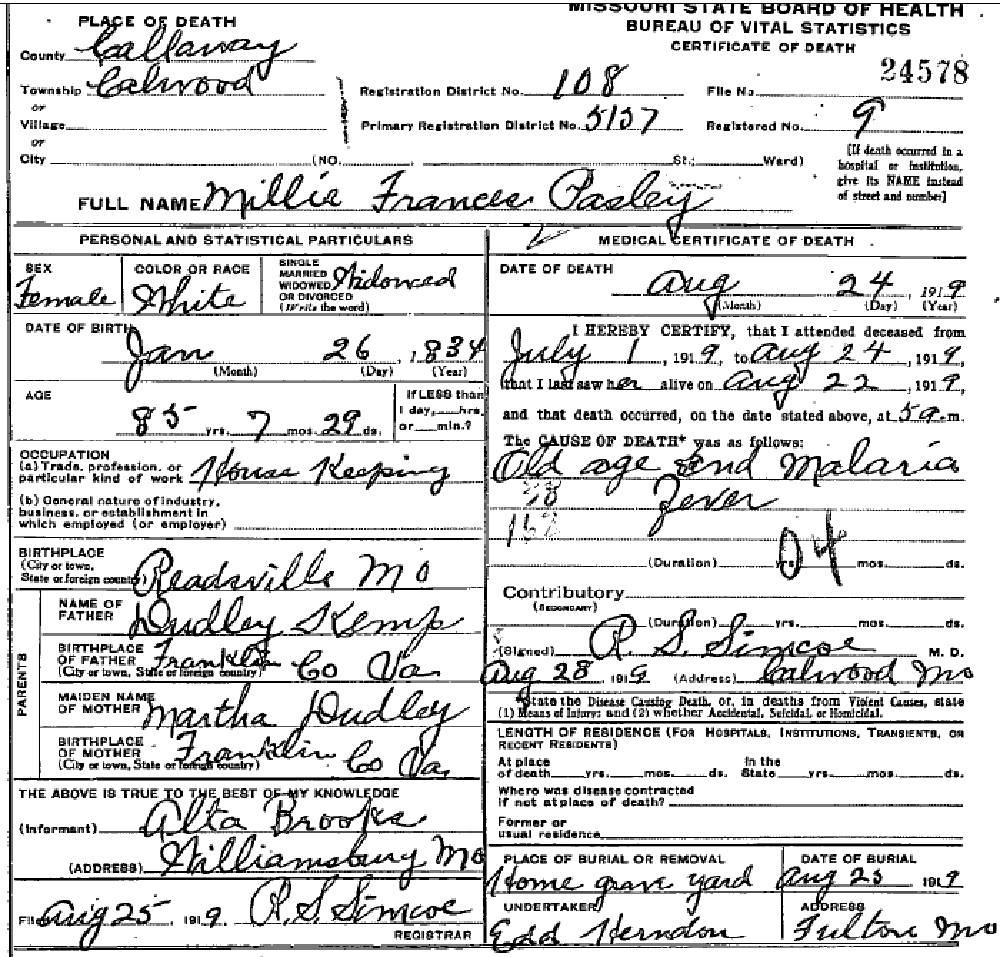 MISSOURI STATE BOARD OF HEALTH
BUREAU OF VITAL STATISTICS
CERTIFICATE OF DEATH
PLACE OF DEATH
County Callaway
Township Calwood
or
Village
or
City (NO. St.; Ward)
Registration District No. 108
Primary Registration District No. 5157
File No. 24578
Registered No. 9
[If death occurred in a
hospital or institution,
give its NAME instead
of street and number]
FULL NAME Millie Frances Pasley
PERSONAL AND STATISTICAL PARTICULARS
SEX
Female
COLOR OR RACE
White
SINGLE
MARRIED
WIDOWED
OR DIVORCED
(Write the word)
Widowed
DATE OF BIRTH
Jan 26, 1834
(Month) (Day) (Year)
AGE
85 yrs. 7 mos. 29 ds.
If LESS than
1 day, hrs.
or min.?
OCCUPATION
(a) Trade, profession, or
particular kind of work House Keeping
(b) General nature of industry,
business, or establishment in
which employed (or employer)
BIRTHPLACE
(City or town,
State or foreign country) Readsville Mo
PARENTS
NAME OF
FATHER Dudley Kemp
BIRTHPLACE
OF FATHER
(City or town, State or foreign country) Franklin Co Va.
MAIDEN NAME
OF MOTHER Martha Dudley
BIRTHPLACE
OF MOTHER
(City or town, State or foreign country) Franklin Co Va.
THE ABOVE IS TRUE TO THE BEST OF MY KNOWLEDGE
(Informant) Alta Brooks
(ADDRESS) Williamsburg Mo
Filed Aug 25 1919 R. S. Simcoe
REGISTRAR
MEDICAL CERTIFICATE OF DEATH
DATE OF DEATH
Aug 24, 1919
(Month) (Day) (Year)
I HEREBY CERTIFY, that I attended deceased from
July 1, 1919, to Aug 24, 1919,
that I last saw her alive on Aug 22, 1919,
and that death occurred, on the date stated above, at 5 a.m.
The CAUSE OF DEATH* was as follows:
Old age and Malaria
Fever
(Duration) yrs. mos. ds.
04
Contributory
(SECONDARY)
(Duration) yrs. mos. ds.
(Signed) R. S. Simcoe M. D.
Aug 28 1919. (Address) Calwood Mo
*State the Disease Causing Death, or, in deaths from Violent Causes, state
(1) Means of Injury; and (2) whether Accidental, Suicidal, or Homicidal.
LENGTH OF RESIDENCE (FOR HOSPITALS, INSTITUTIONS, TRANSIENTS, OR
RECENT RESIDENTS)
At place
of death yrs. mos. ds.
In the
State yrs. mos. ds.
Where was disease contracted
if not at place of death?
Former or
usual residence
PLACE OF BURIAL OR REMOVAL
Home grave yard
DATE OF BURIAL
Aug 25 1919
UNDERTAKER
Edd Herndon
ADDRESS
Fulton Mo